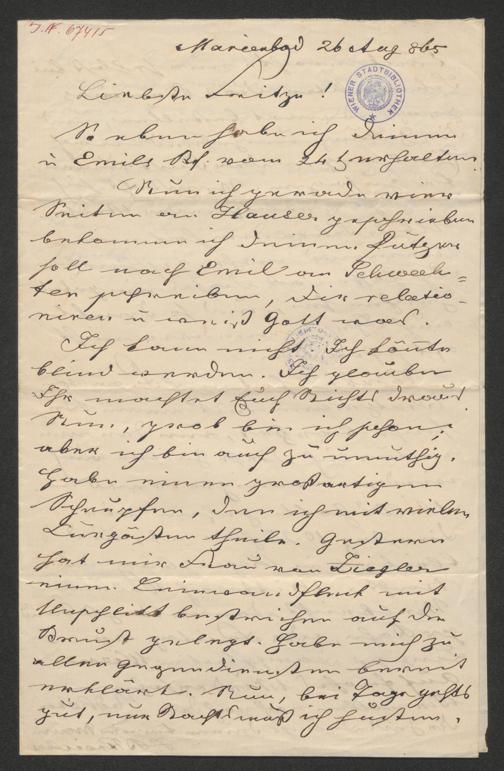 I.N. 67415
Marienbad 26 Aug 865
WIENER STADTBIBLIOTHEK
Liebste Fritze!
So eben habe ich Deinen
u Emils Bf. vom 24t erhalten.
Nun ich gerade vier
Seiten an Hauser geschrieben
bekomme ich Deinen
soll noch Emil an Schwech=
ten schreiben, Dir relatio=
niren u weiß Gott was.
Ich kann nicht. Ich könnte
blind werden. Ich glaube
Ihr machtet Euch Nichts draus
Nun, grob bin ich schon,
aber ich bin auch zu unmuthig.
Habe einen großartigen
Schnupfen, den ich mit vielen
Curgästen theile. Gestern
hat mir Frau von Ziegler
einen Leinwandfleck mit
Unschlitt bestrichen auf die
Brust gelegt. Habe mich zu
allen Gegendiensten bereit
erklärt. Nun, bei Tage gehts
gut, nur Nachts muß ich husten.